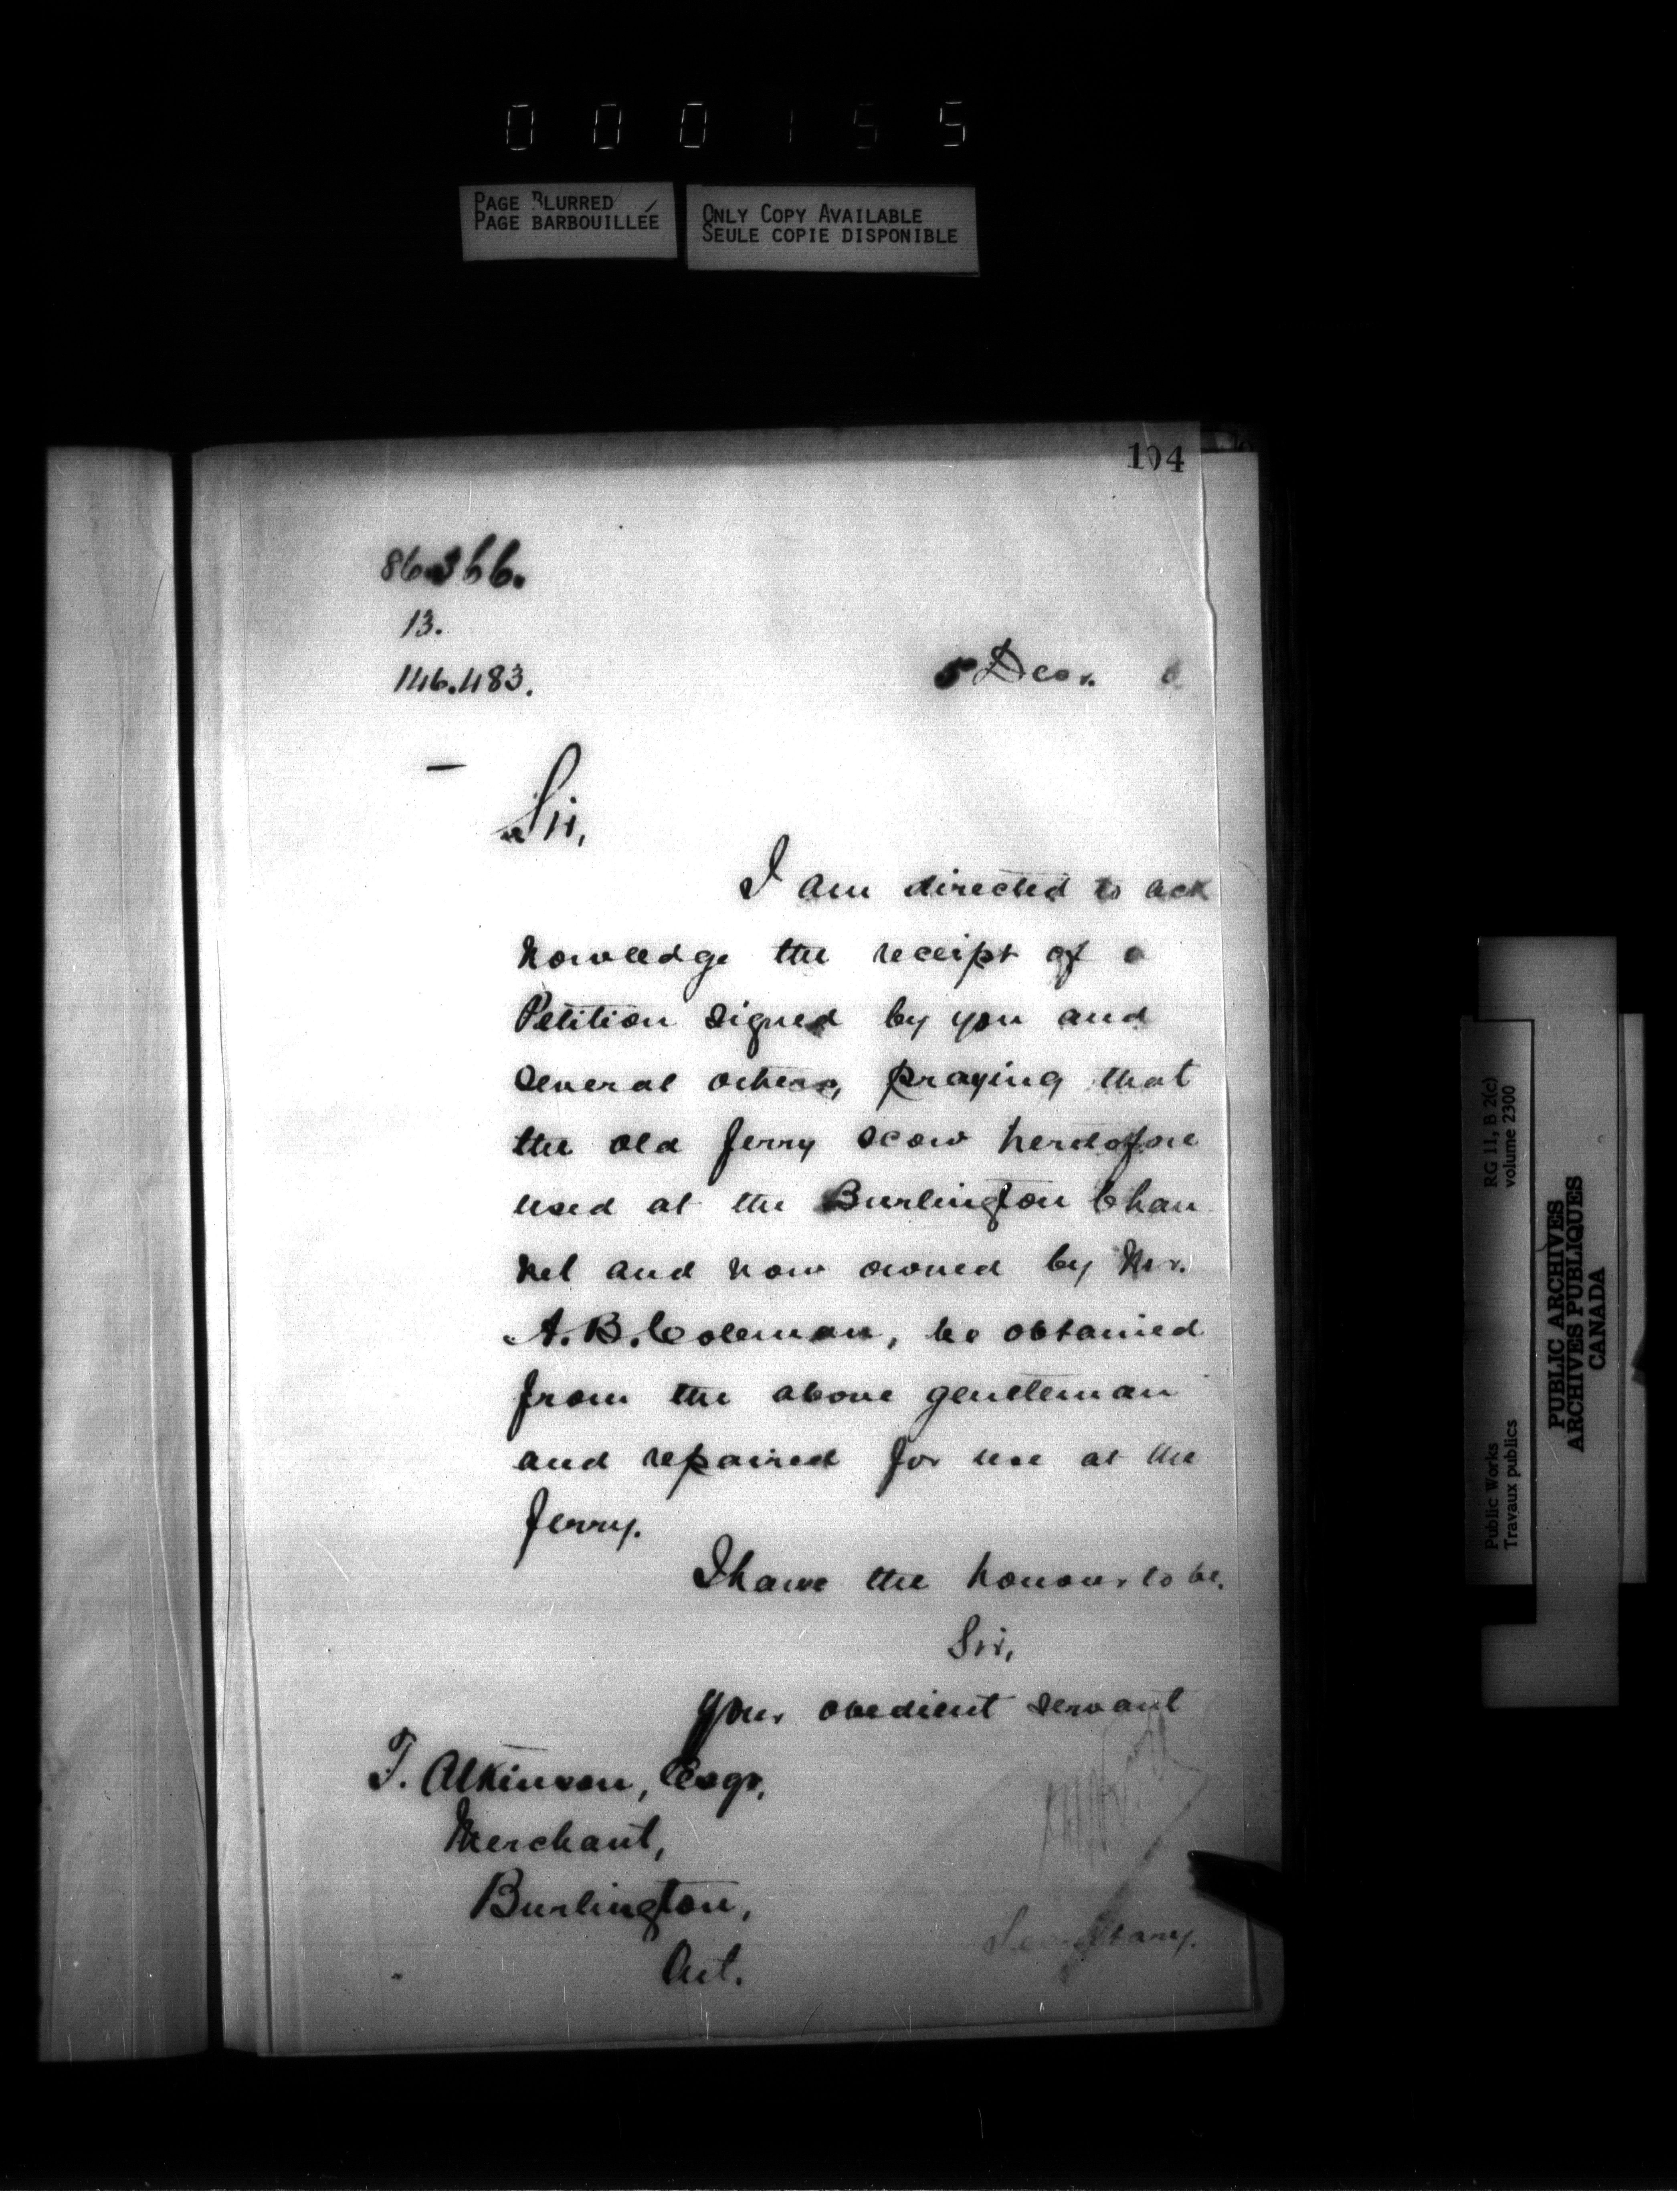 000155
PAGE BLURRED
PAGE BARBOUILLÉE
ONLY COPY AVAILABLE
SEULE COPIE DISPONIBLE
104
86.366.
13.
146.483.
5 Decr. 6
Sir,
I am directed to ack
nowledge the receipt of a
Petition signed by you and
several others, praying that
the old ferry scow heretofore
used at the Burlington Chan
nel and now owned by Mr.
A. B. Coleman, be obtained
from the above gentleman
and repaired for use at the
ferry.
I have the honour to be,
Sir,
Your obedient servant
T. Atkinson, Esqr,
Merchant,
Burlington,
Ont.
Secretary.
Public Works
Travaux publics
RG 11, B 2(c)
volume 2300
PUBLIC ARCHIVES
ARCHIVES PUBLIQUES
CANADA